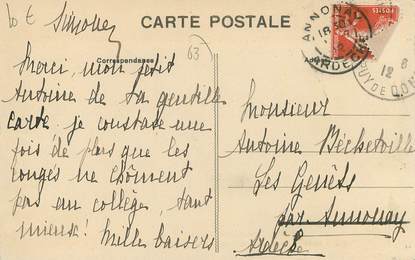 10 €
Simone
CARTE POSTALE
63
Correspondance
Merci, mon petit
Antoine de ta gentille
carte je constate une
fois de plus que les
congés ne chôment
pas au collège, tant
mieux! Mille baisers
ANNONAY
ARDÈCHE
PUY DE DÔME
12 8
Monsieur
Antoine Béchetoille
Les Genêts
par Annonay
Ardèche